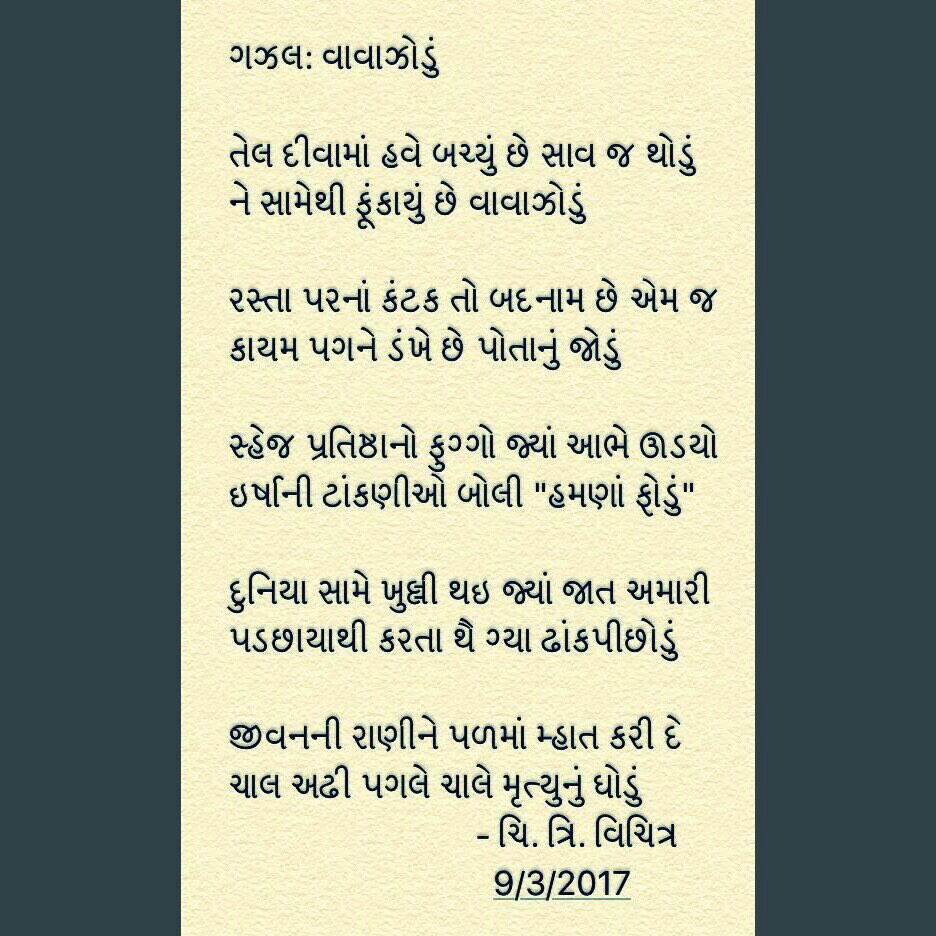 ગઝલ: વાવાઝોડું
તેલ દીવામાં હવે બચ્યું છે સાવ જ થોડું
ને સામેથી ફૂંકાયું છે વાવાઝોડું
રસ્તા પરનાં કંટક તો બદનામ છે એમ જ
કાયમ પગને ડંખે છે પોતાનું જોડું
સ્હેજ પ્રતિષ્ઠાનો ફુગ્ગો જ્યાં આભે ઊડયો
ઇર્ષાની ટાંકણીઓ બોલી "હમણાં ફોડું"
દુનિયા સામે ખુલ્લી થઇ જ્યાં જાત અમારી
પડછાયાથી કરતા થૈ ગ્યા ઢાંકપીછોડું
જીવનની રાણીને પળમાં મ્હાત કરી દે
ચાલ અઢી પગલે ચાલે મૃત્યુનું ઘોડું
- ચિ. ત્રિ. વિચિત્ર
9/3/2017